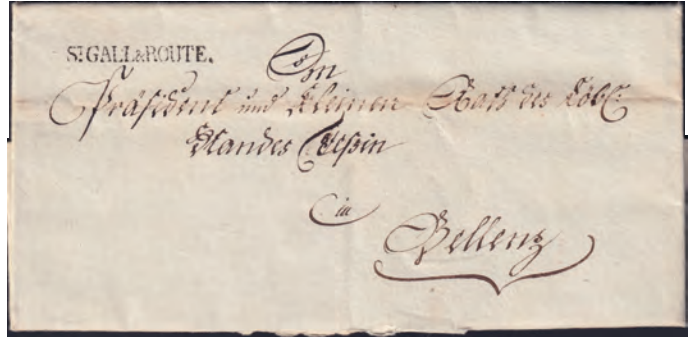 St GALL & ROUTE.
An
Präsident und Kleinen Rath des Löbl:
Standes Teßin
in
Bellenz